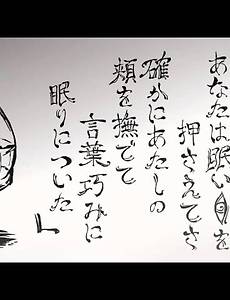 あなたは眠い目を
押さえてさ
確かにあたしの
頬を撫でて
言葉巧みに
眠りについた